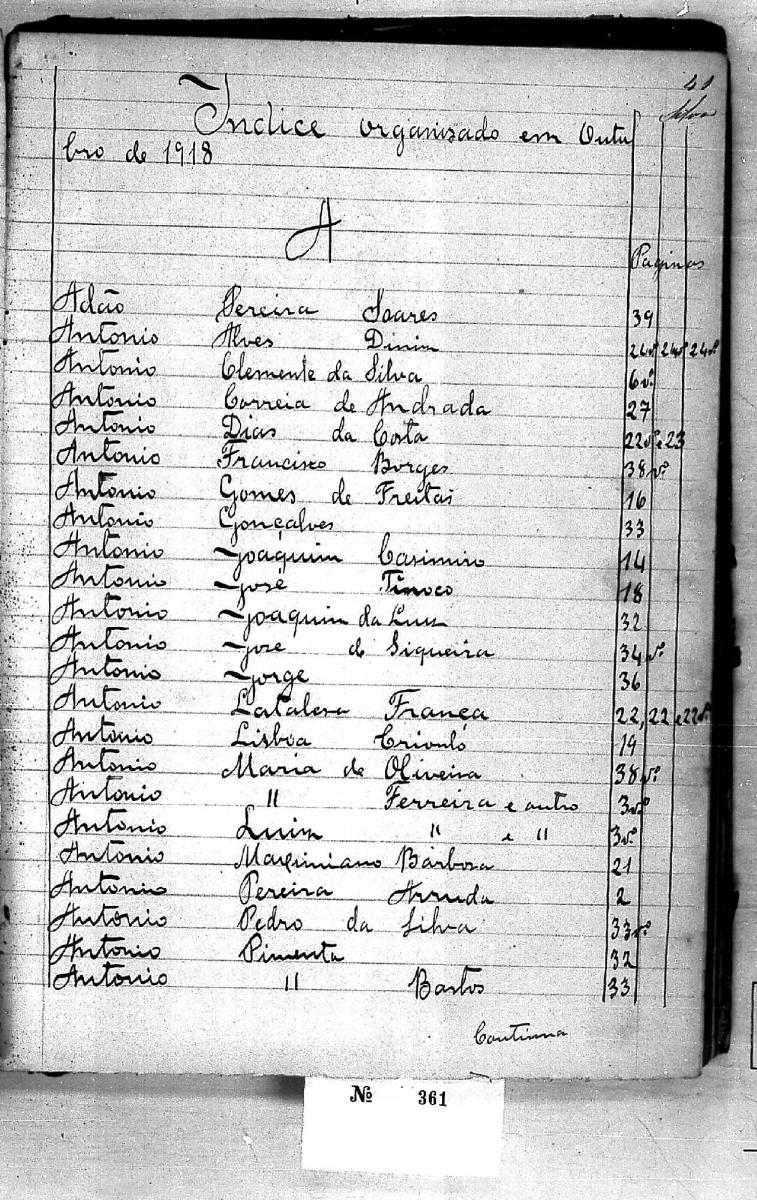 41
Indice organisado em Outu
bro de 1918
A
Paginas
Adão Pereira Soares 39
Antonio Alves Diniz 24vº 24vº 24vº
Antonio Clemente da Silva 6vº
Antonio Correia de Andrada 27
Antonio Dias da Costa 22vº e 23
Antonio Francisco Borges 38vº
Antonio Gomes de Freitas 16
Antonio Gonçalves 33
Antonio Joaquim Casimiro 14
Antonio José Tinoco 18
Antonio Joaquim da Luz 32
Antonio José de Siqueira 34vº
Antonio Jorge 36
Antonio França 22, 22 e 22vº
Antonio Lisboa Crioulo 19
Antonio Maria de Oliveira 38vº
Antonio " Ferreira e outro 3vº
Antonio Luiz " e " 3vº
Antonio Maximiano Barbosa 21
Antonio Pereira Arruda 2
Antonio Pedro da Silva 33vº
Antonio Pimenta 32
Antonio " Bastos 33
Continua
№ 361